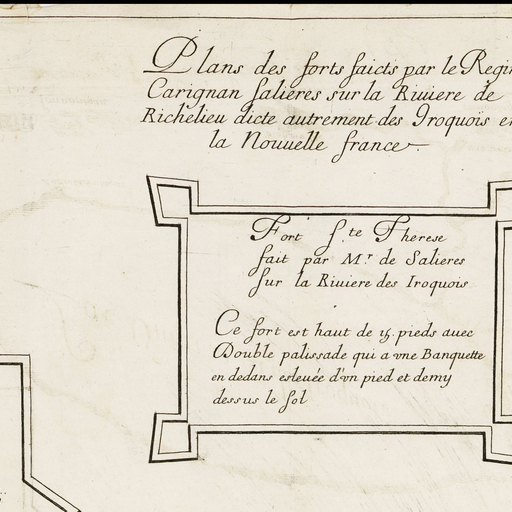 Plans des forts faicts par le Regim
Carignan Salieres sur la Riuiere de
Richelieu dicte autrement des Iroquois en
la Nouuelle france
Fort S.te Therese
fait par Mr. de Salieres
sur la Riuiere des Iroquois
Ce fort est haut de 15. pieds auec
Double palissade qui a vne Banquette
en dedans esleuée d'vn pied et demy
dessus le sol